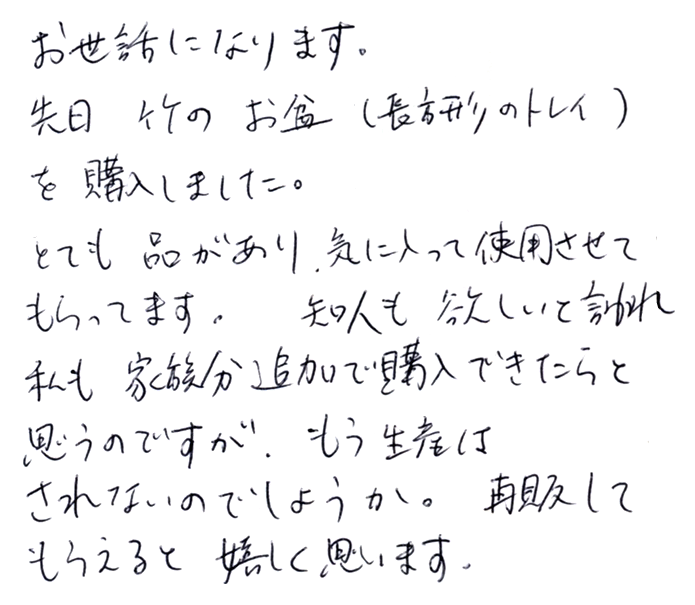 お世話になります。
先日 竹の お盆 (長方形のトレイ)
を 購入しました。
とても 品があり、気に入って使用させて
もらってます。 知人も 欲しいと言われ
私も 家族分 追加で購入できたらと
思うのですが、もう生産は
されないのでしょうか。 再販して
もらえると 嬉しく思います。